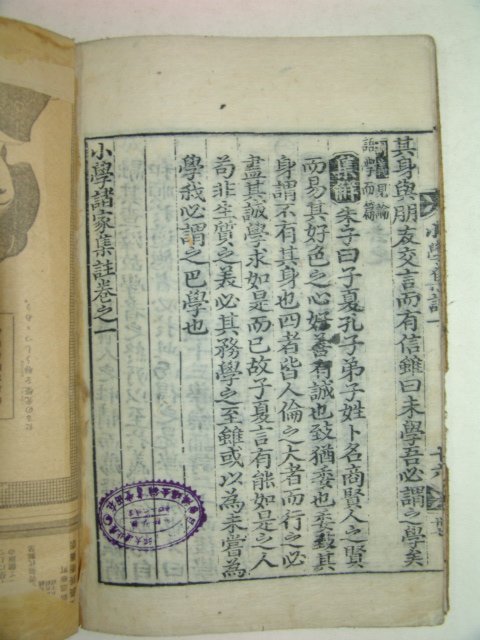 其身與朋友交言而有信雖曰未學吾必謂之學矣
見論
語學而篇
集解 朱子曰子夏孔子弟子姓卜名商賢人之賢
而易其好色之心好善有誠也致猶委也委致其
身謂不有其身也四者皆人倫之大者而行之必
盡其誠學求如是而已故子夏言有能如是之人
苟非生質之美必其務學之至雖或以為未嘗為
學我必謂之已學也
小學諸家集註卷之一